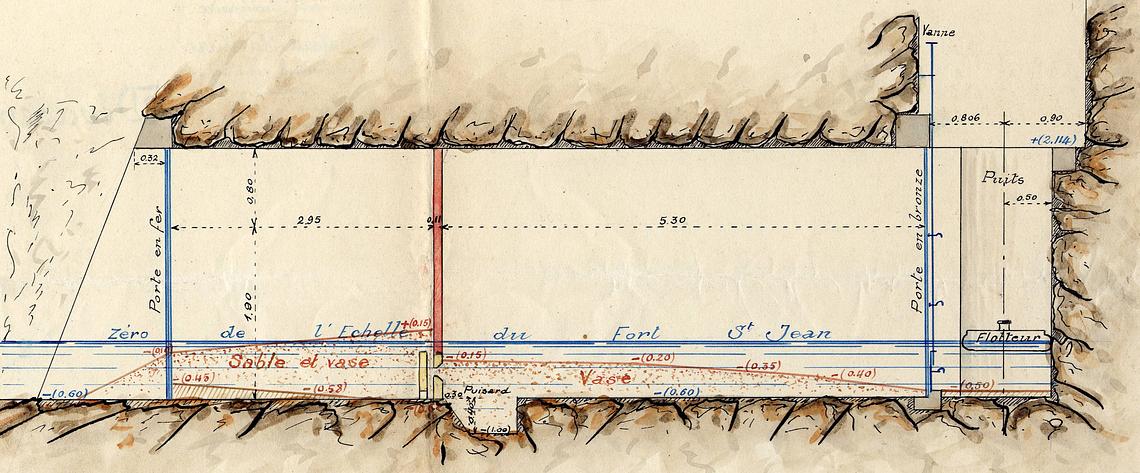 Vanne
0.806
0.90
+(2.114)
0.32
Puits
0.50
0.80
2.95
0.11
5.30
Porte en fer
Porte en bronze
1.90
Zéro de l'Echelle du Fort St Jean
+(0.15)
Flotteur
Sable et vase
-(0.15)
-(0.20)
-(0.35)
-(0.40)
Vase
-(0.45)
-(0.52)
-(0.60)
-(0.60)
-(0.50)
Puisard
0.30
-(1.00)